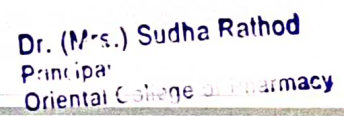 Dr. (Mrs.) Sudha Rathod
Principal
Oriental College of Pharmacy